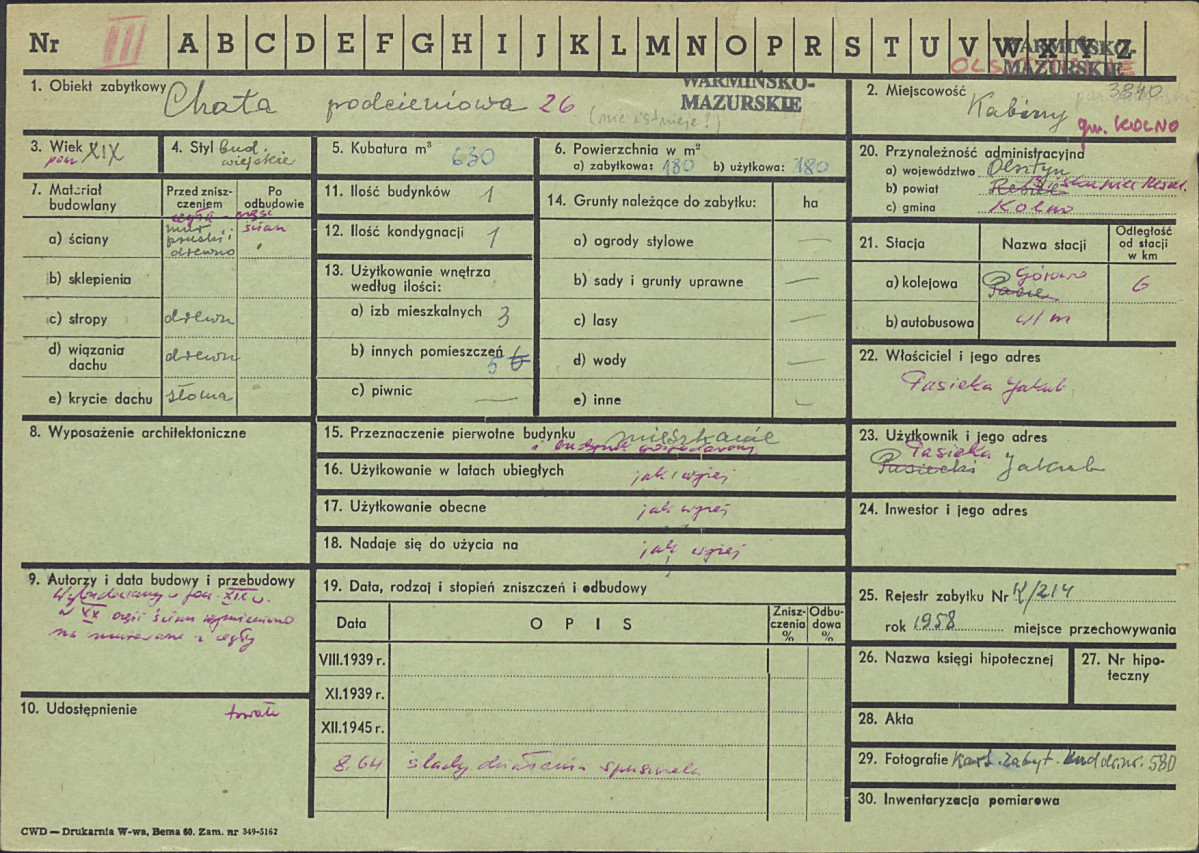 Nr III A B C D E F G H I J K L M N O P R S T U V W X Y Z
WARMIŃSKO-
MAZURSKIE
1. Obiekt zabytkowy Chata podcieniowa 26
(nie istnieje?)
WARMIŃSKO-
MAZURSKIE
2. Miejscowość 3840
Kabiny
gm. KOLNO
3. Wiek
pocz XIX
4. Styl bud.
wiejskie
5. Kubatura m³ 630
6. Powierzchnia w m²
a) zabytkowa: 180 b) użytkowa: 180
20. Przynależność administracyjna
a) województwo Olsztyn
b) powiat
c) gmina Kolno
7. Materiał budowlany
Przed zniszczeniem
Po odbudowie
a) ściany
mur
pruski i
drewno
ścian
b) sklepienia
c) stropy drewn
d) wiązania dachu drewn
e) krycie dachu słoma
11. Ilość budynków 1
12. Ilość kondygnacji 1
13. Użytkowanie wnętrza
według ilości:
a) izb mieszkalnych 3
b) innych pomieszczeń
5 6
c) piwnic —
14. Grunty należące do zabytku: ha
a) ogrody stylowe —
b) sady i grunty uprawne —
c) lasy —
d) wody —
e) inne —
21. Stacja
Nazwa stacji
Odległość
od stacji
w km
a) kolejowa Górowo 6
b) autobusowa w/m
22. Właściciel i jego adres
Pasieka Jakub
8. Wyposażenie architektoniczne
15. Przeznaczenie pierwotne budynku mieszkanie
i budynek gospodarczy
16. Użytkowanie w latach ubiegłych jak wyżej
17. Użytkowanie obecne jak wyżej
18. Nadaje się do użycia na jak wyżej
23. Użytkownik i jego adres
Pasieka
Pasiecki Jakub
24. Inwestor i jego adres
9. Autorzy i data budowy i przebudowy
Wybudowany w pocz. XIX w.
w XX część ścian wymieniono
na murowane z cegły
10. Udostępnienie
19. Data, rodzaj i stopień zniszczeń i odbudowy
Data OPIS Zniszczenia % Odbudowa %
VIII.1939 r.
XI.1939 r.
XII.1945 r.
8.64 ślady działania spuszczela
25. Rejestr zabytku Nr K/214
rok 1958 miejsce przechowywania
26. Nazwa księgi hipotecznej
27. Nr hipoteczny
28. Akta
29. Fotografie Kart. zabyt. bud drzw. 580
30. Inwentaryzacja pomiarowa
CWD — Drukarnia W-wa, Bema 60. Zam. nr 349-5162